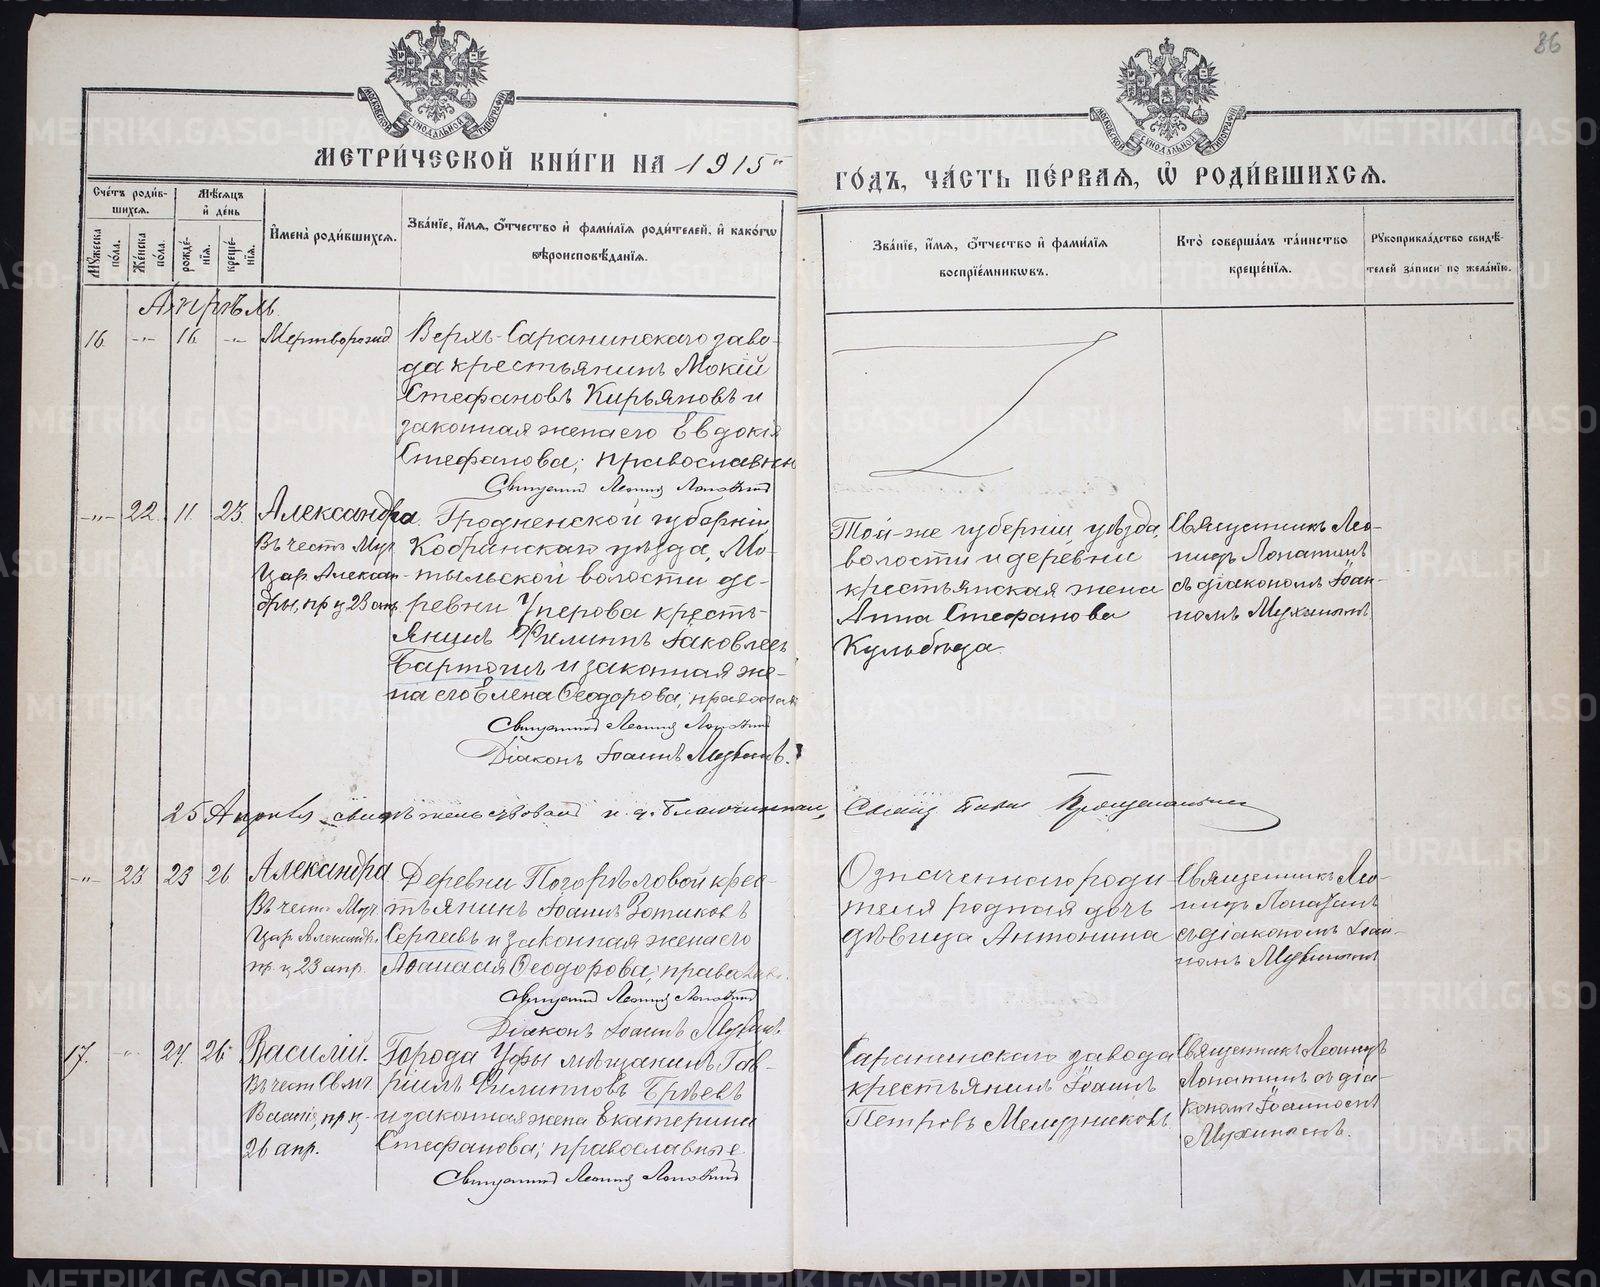 86
МОСКОВСКОЙ СѴНОДАЛЬНОЙ ТИПОГРАФІИ
МОСКОВСКОЙ СѴНОДАЛЬНОЙ ТИПОГРАФІИ
МЕТРИ́ЧЕСКОЙ КНИ́ГИ НА 1915й
ГО́ДЪ, ЧА́СТЬ ПЕ́РВАѦ, Ѽ РОДИ́ВШИХСѦ.
Сче́тъ роди́в-
шихсѧ.
Мѣ́сѧцъ
и҆ де́нь
Мꙋ́жеска
по́ла.
Же́нска
по́ла.
рожде́-
нїѧ.
креще́-
нїѧ.
И҆мена̀ роди́вшихсѧ.
Зва́нїе, и҆́мѧ, ѻ҆́тчество и҆ фами́лїѧ роди́телей, и҆ како́гѡ
вѣроисповѣ́данїѧ.
Зва́нїе, и҆́мѧ, ѻ҆́тчество и҆ фами́лїѧ
воспрїе́мникѡвъ.
Кто̀ соверша́лъ та́инство
креще́нїѧ.
Рꙋкоприкла́дство свидѣ́-
телей за́писи по жела́нїю.
Апрѣль
16 -"- 16 -"- Мертворожд
Верхъ-Саранинскаго заво-
да крестьянинъ Мокій
Стефановъ Кирьяновъ и
законная жена его Евдокія
Стефанова; православны
Священникъ Леонидъ Лопатинъ
-"- 22 11 23 Александра
Въ честь Муч.
Цар. Алексан-
дры, пр. ц. 23 апр.
Гродненской губерніи
Кобринскаго уѣзда, Мо-
тыльской волости де-
ревни Уперова кресть-
янинъ Филиппъ Іаковлевъ
и законная же-
на его Елена Ѳеодорова;
Священникъ Леонидъ Лопатинъ
Діаконъ Іоаннъ Мухинъ.
Той-же губерніи, уѣзда,
волости и деревни
крестьянская жена
Анна Стефанова
Кульбѣда
Священникъ Лео-
нидъ Лопатинъ
съ діакономъ Іоан-
номъ Мухинымъ
25 Апрѣля свидѣтельствовалъ и. д. Благочиннаго,
-"- 23 23 26 Александра
Въ честь Муч.
Цар. Александры,
пр. ц 23 апр.
Деревни Погорѣловой крес-
тьянинъ Іоаннъ Зотиковъ
Сергѣевъ и законная жена его
Аѳанасія Ѳеодорова;
Священникъ Леонидъ Лопатинъ
Діаконъ Іоаннъ Мухинъ
Означеннаго роди-
теля родная дочь
дѣвица Антонина
Священникъ Лео-
нидъ Лопатинъ
съ діакономъ Іоан-
номъ Мухинымъ
17. -"- 24 26 Василій.
Въ честь Св. мч
Василія, пр. ц.
26 апр.
Города Уфы мѣщанинъ Гав-
ріилъ Филипповъ Ерѣевъ
и законная жена Екатерина
Стефанова; православные
Священникъ Леонидъ Лопатинъ
Саранинскаго завода
крестьянинъ Іоаннъ
Петровъ Мельниковъ
Священникъ Леонидъ
Лопатинъ съ діа-
кономъ Іоанномъ
Мухинымъ.
METRIKI.GASO-URAL.RU